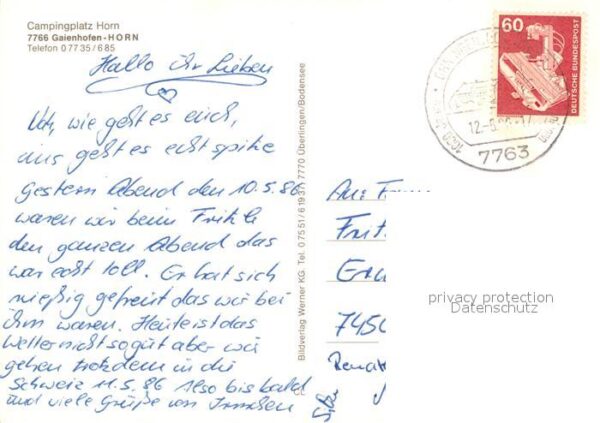 Campingplatz Horn
7766 Gaienhofen-HORN
Telefon 0 77 35 / 6 85
Hallo ihr Lieben
wie geht es euch,
uns geht es echt spitze
Gestern Abend den 10.5.86
waren wir beim Fritzle
den ganzen Abend das
war echt toll. Er hat sich
mießig gefreut das wir bei
ihm waren. Heute ist das
Wetter nicht so gut aber wir
gehen trotzdem in die
Schweiz 11.5.86 Also bis bald
und viele Grüße von
Bildverlag Werner KG. Tel. 0 75 51 / 6 19 37 7770 Überlingen/Bodensee
60
DEUTSCHE BUNDESPOST
7763
An:
7450
privacy protection
Datenschutz